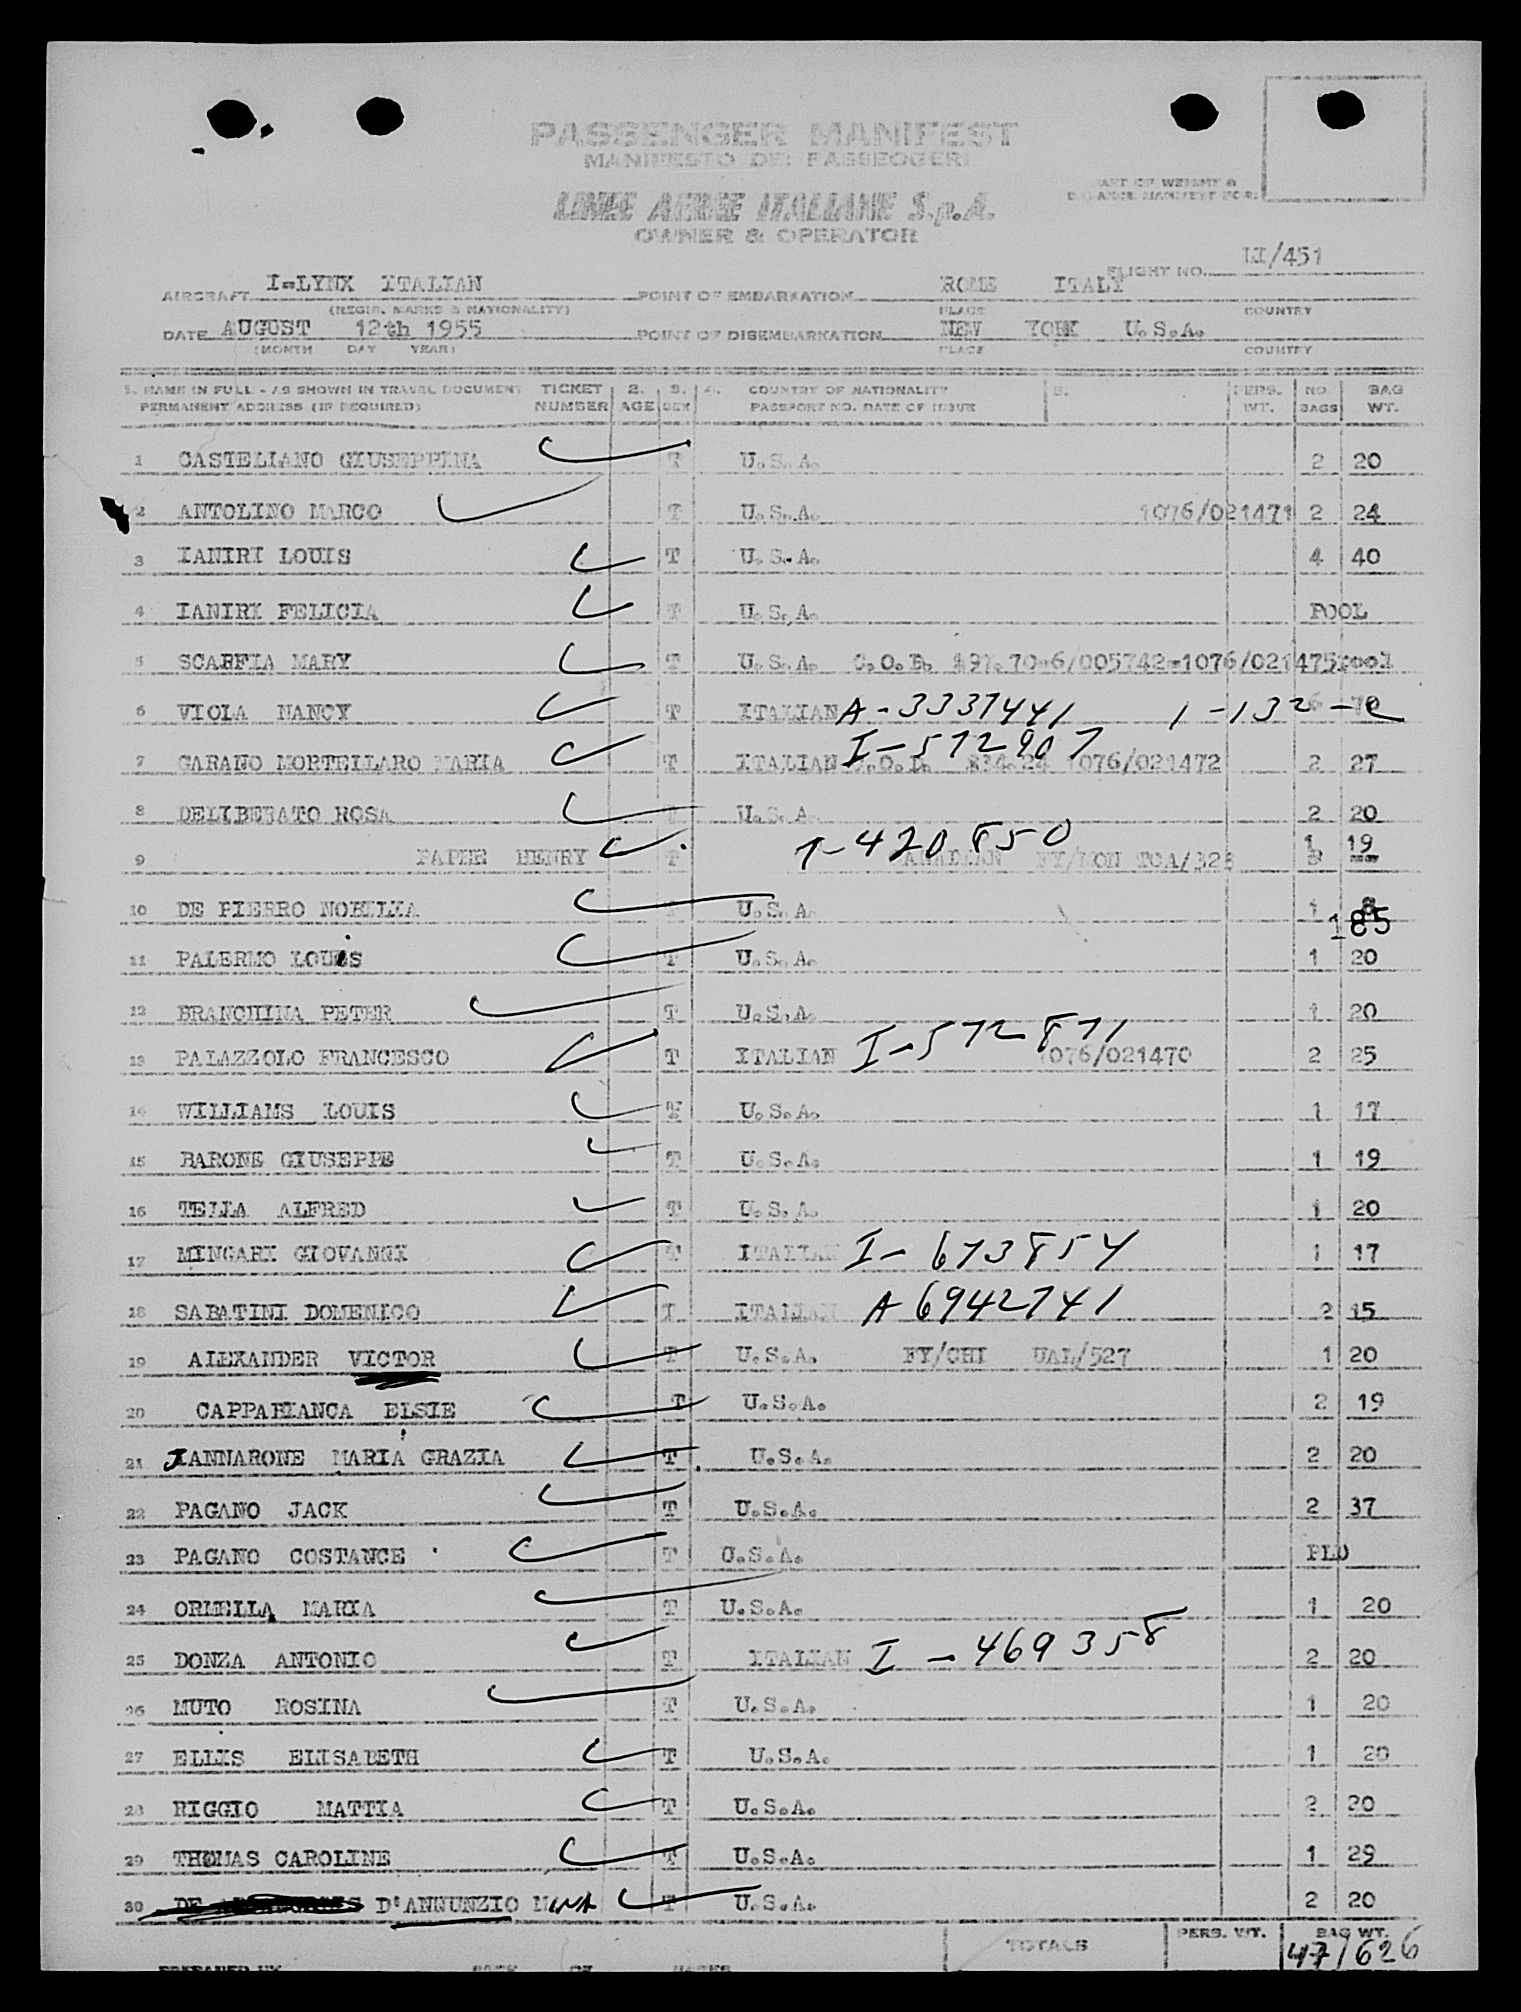 PASSENGER MANIFEST
MANIFESTO DEI PASSEGGERI
PART OF WEIGHT &
BALANCE MANIFEST FOR:
LINEE AEREE ITALIANE S.p.A.
OWNER & OPERATOR
AIRCRAFT I-LYNX ITALIAN POINT OF EMBARKATION ROME ITALY FLIGHT NO. LI/451
(REGIS. MARKS & NATIONALITY) PLACE COUNTRY
DATE AUGUST 12th 1955 POINT OF DISEMBARKATION NEW YORK U.S.A.
(MONTH DAY YEAR) PLACE COUNTRY
1. NAME IN FULL - AS SHOWN IN TRAVAL DOCUMENT TICKET 2. 3. 4. COUNTRY OF NATIONALITY 5. PERS. NO. BAG
PERMANENT ADDRESS (IF REQUIRED) NUMBER AGE SEX PASSPORT NO. DATE OF ISSUE WT. BAGS WT.
1 CASTELLANO GIUSEPPINA T U.S.A. 2 20
2 ANTOLINO MARCO T U.S.A. 1076/021471 2 24
3 IANIRI LOUIS T U.S.A. 4 40
4 IANIRI FELICIA T U.S.A. POOL
5 SCARFIA MARY T U.S.A. 6/005742=1076/021475 pool
6 VIOLA NANCY T ITALIAN A-3337441 1-132-
7 GARANO MORTELLARO MARIA T ITALIAN I-572907 1076/021472 2 27
8 DELIBERATO ROSA T U.S.A. 2 20
9 HENRY T I-420850 TCA/328 1 19
10 DE PIERRO NOBILIA U.S.A. 1 8
185
11 PALERMO LOUIS T U.S.A. 1 20
12 BRANCHINA PETER T U.S.A. 1 20
13 PALAZZOLO FRANCESCO T ITALIAN I-572871 1076/021470 2 25
14 WILLIAMS LOUIS T U.S.A. 1 17
15 BARONE GIUSEPPE T U.S.A. 1 19
16 TELLA ALFRED T U.S.A. 1 20
17 MINGARI GIOVANNI T ITALIAN I-673854 1 17
18 SABATINI DOMENICO T ITALIAN A6942741 2 15
19 ALEXANDER VICTOR T U.S.A. FY/CHI UAL/527 1 20
20 CAPPABIANCA ELSIE T U.S.A. 2 19
21 IANNARONE MARIA GRAZIA T U.S.A. 2 20
22 PAGANO JACK T U.S.A. 2 37
23 PAGANO COSTANCE T U.S.A. PLD
24 ORMELLA MARIA T U.S.A. 1 20
25 DONZA ANTONIO T ITALIAN I-469358 2 20
26 MUTO ROSINA T U.S.A. 1 20
27 ELLIS ELISABETH T U.S.A. 1 20
28 RIGGIO MATTIA T U.S.A. 2 20
29 THOMAS CAROLINE T U.S.A. 1 29
30 DE D'ANNUNZIO T U.S.A. 2 20
TOTALS PERS. WT. BAG WT.
47/626
PREPARED BY